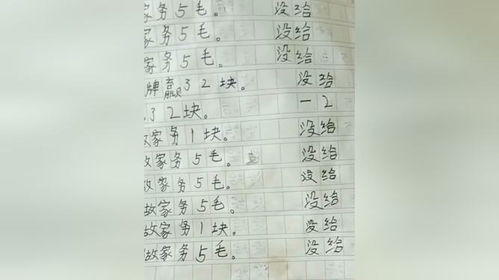 家务5毛。 没给
家务5毛。 没给
家务5毛。 没给
牌赢32块。 没给
32块。 一2
家务1块。 没给
故家务5毛。 没给
故家务5毛。 没给
故家务5毛。 没给
故家务1块。 没给
故家务5毛。 没给